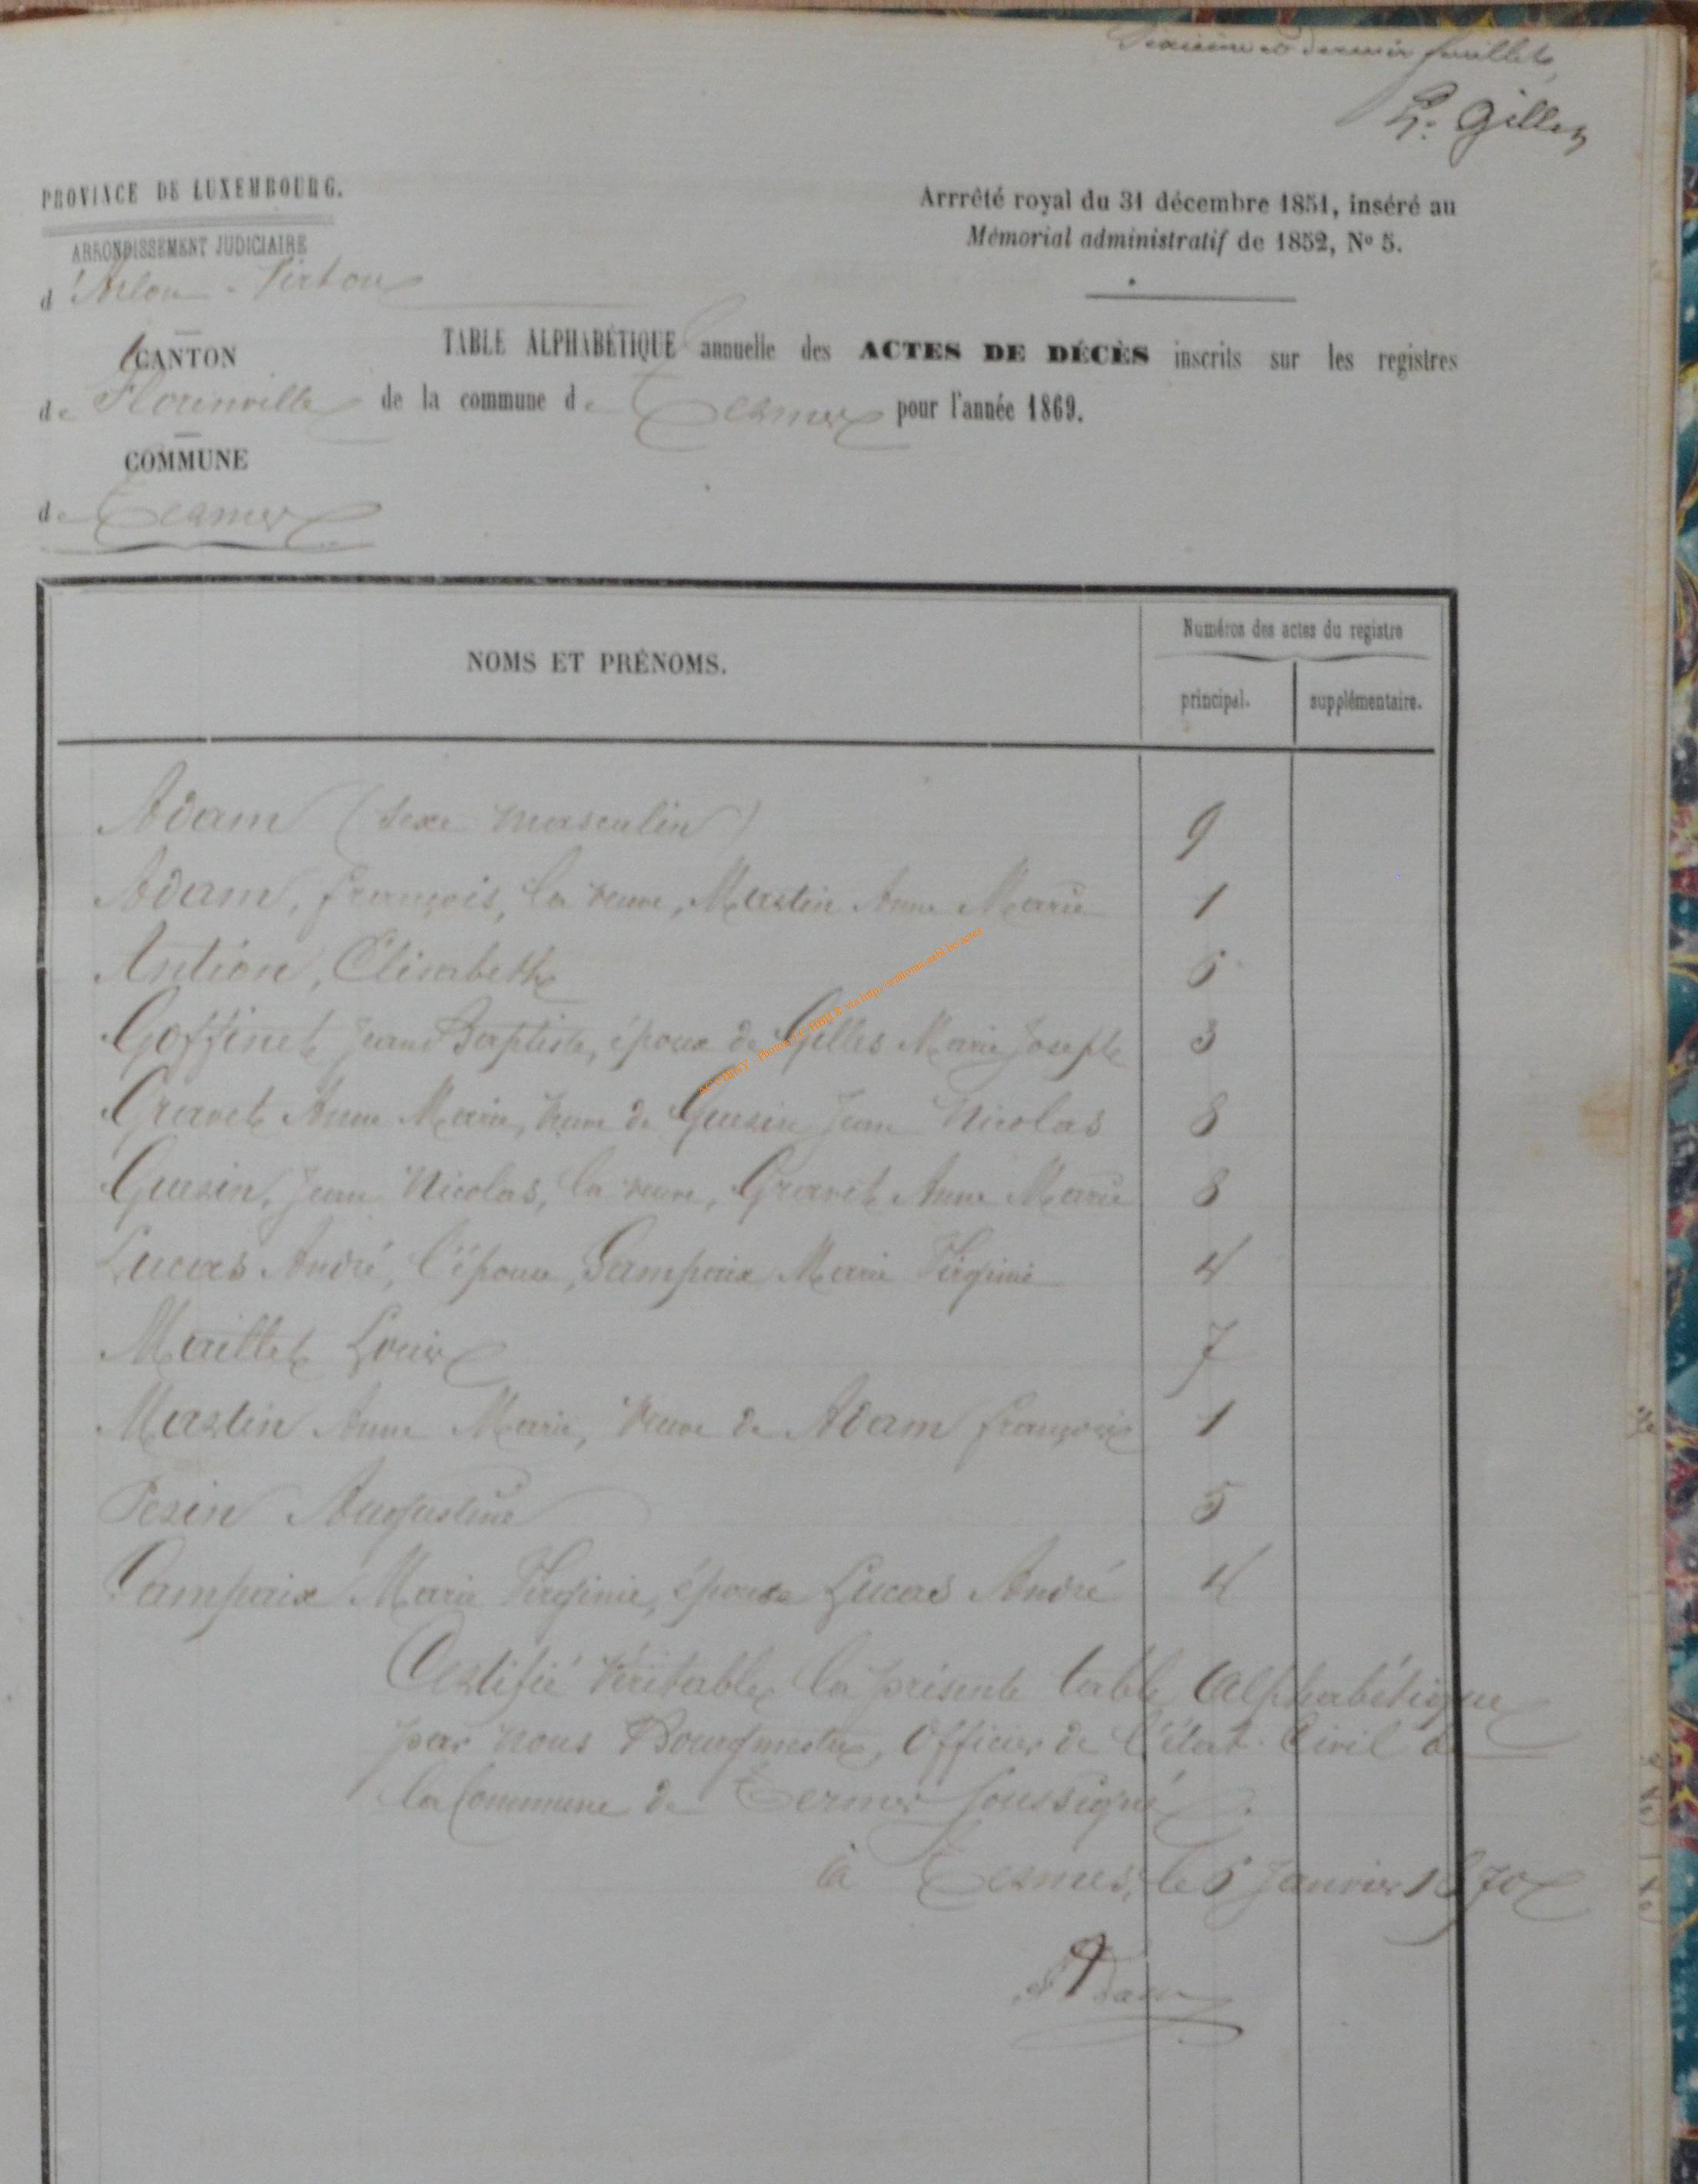 et dernier feuillet,
L. Gilles
PROVINCE DE LUXEMBOURG.
Arrrêté royal du 31 décembre 1851, inséré au
Mémorial administratif de 1852, No 5.
ARRONDISSEMENT JUDICIAIRE
d'Arlon-Virton
TABLE ALPHABÉTIQUE annuelle des ACTES DE DÉCÈS inscrits sur les registres
CANTON
de Florenville
de la commune de Termes pour l'année 1869.
COMMUNE
de Termes
NOMS ET PRÉNOMS.
Numéros des actes du registre
principal.
supplémentaire.
Adam (sexe masculin) 9
Adam, François, la veuve, Martin Anne Marie 1
Antion, Elisabeth 6
Goffinet Jean Baptiste, époux de Gilles Marie Joseph 3
Gravet Anne Marie, veuve de Guesin Jean Nicolas 8
Guesin, Jean Nicolas, la veuve, Gravet Anne Marie 8
Lucas André, l'épouse, Sampaix Marie Virginie 4
Maillet Louis 7
Martin Anne Marie, veuve de Adam François 1
Pesin Augustine 5
Sampaix Marie Virginie, épouse Lucas André 4
Certifié véritable la présente table Alphabétique
par nous Bourgmestre, Officier de l'état-Civil de
la Commune de Termes soussigné
à Termes, le 6 Janvier 1870
Adam